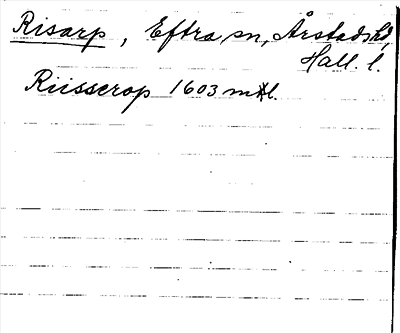 Risarp, Eftra sn, Årstads hd,
Hall. l.
Riisserop 1603 mtl.